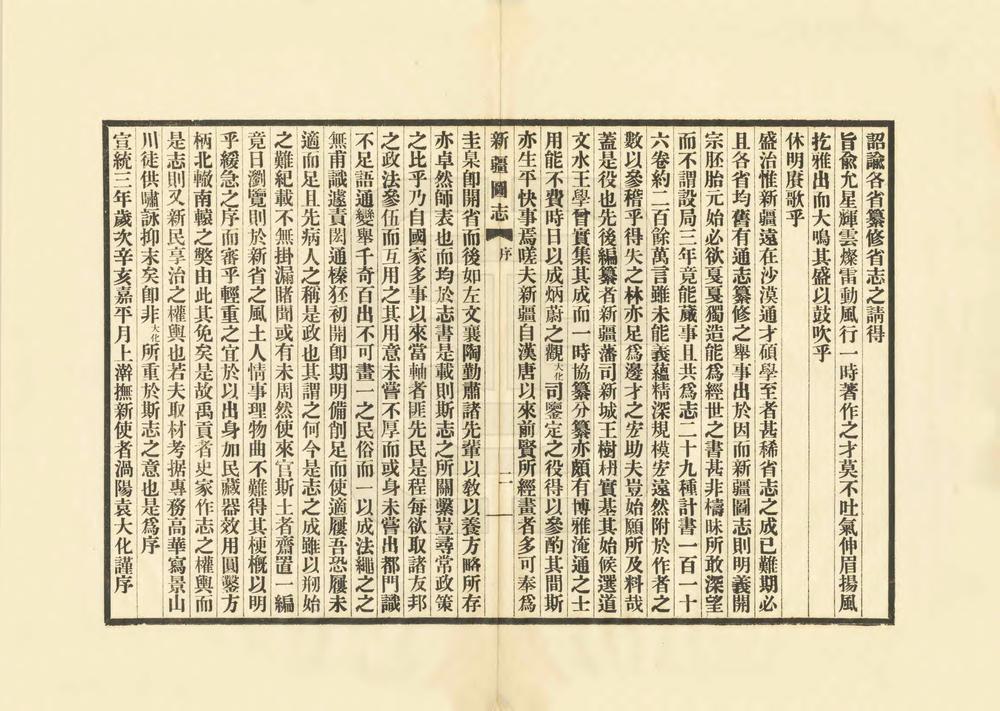 詔諭各省纂修省志之請得
旨兪允星輝雲燦雷動風行一時著作之才莫不吐氣伸眉揚風
扢雅出而大鳴其盛以鼓吹乎
休明賡歌乎
盛治惟新疆遠在沙漠通才碩學至者甚稀省志之成已難期必
且各省均舊有通志纂修之舉事出於因而新疆圖志則明義開
宗胚胎元始必欲戛戛獨造能爲經世之書甚非檮昧所敢深望
而不謂設局三年竟能蕆事且共爲志二十九種計書一百一十
六卷約二百餘萬言雖未能義蘊精深規模宏遠然附於作者之
數以參稽乎得失之林亦足爲邊才之宏助夫豈始願所及料哉
蓋是役也先後編纂者新疆藩司新城王樹枏實基其始候選道
文水王學曾實集其成而一時協纂分纂亦頗有博雅淹通之士
用能不費時日以成炳蔚之觀大化司鑒定之役得以參酌其間斯
亦生平快事焉嗟夫新疆自漢唐以來前賢所經畫者多可奉爲
新疆圖志 序 二
圭臬卽開省而後如左文襄陶勤肅諸先輩以敎以養方略所存
亦卓然師表也而均於志書是載則斯志之所關繫豈尋常政策
之比乎乃自國家多事以來當軸者匪先民是程每欲取諸友邦
之政法參伍而互用之其用意未嘗不厚而或身未嘗出都門識
不足語通變舉千奇百出不可畫一之民俗而一以成法繩之之
無甫識遽責閎通榛狉初開卽期明備削足而使適屨吾恐屨未
適而足且先病人之稱是政也其謂之何今是志之成雖以刱始
之難紀載不無掛漏睹聞或有未周然使來官斯土者齋置一編
竟日瀏覽則於新省之風土人情事理物曲不難得其梗槪以明
乎緩急之序而審乎輕重之宜於以出身加民藏器效用圓鑿方
柄北轍南轅之獘由此其免矣是故禹貢者史家作志之權輿而
是志則又新民享治之權輿也若夫取材考据專務高華寫景山
川徒供嘯詠抑末矣卽非大化所重於斯志之意也是爲序
宣統三年歲次辛亥嘉平月上澣撫新使者渦陽袁大化謹序